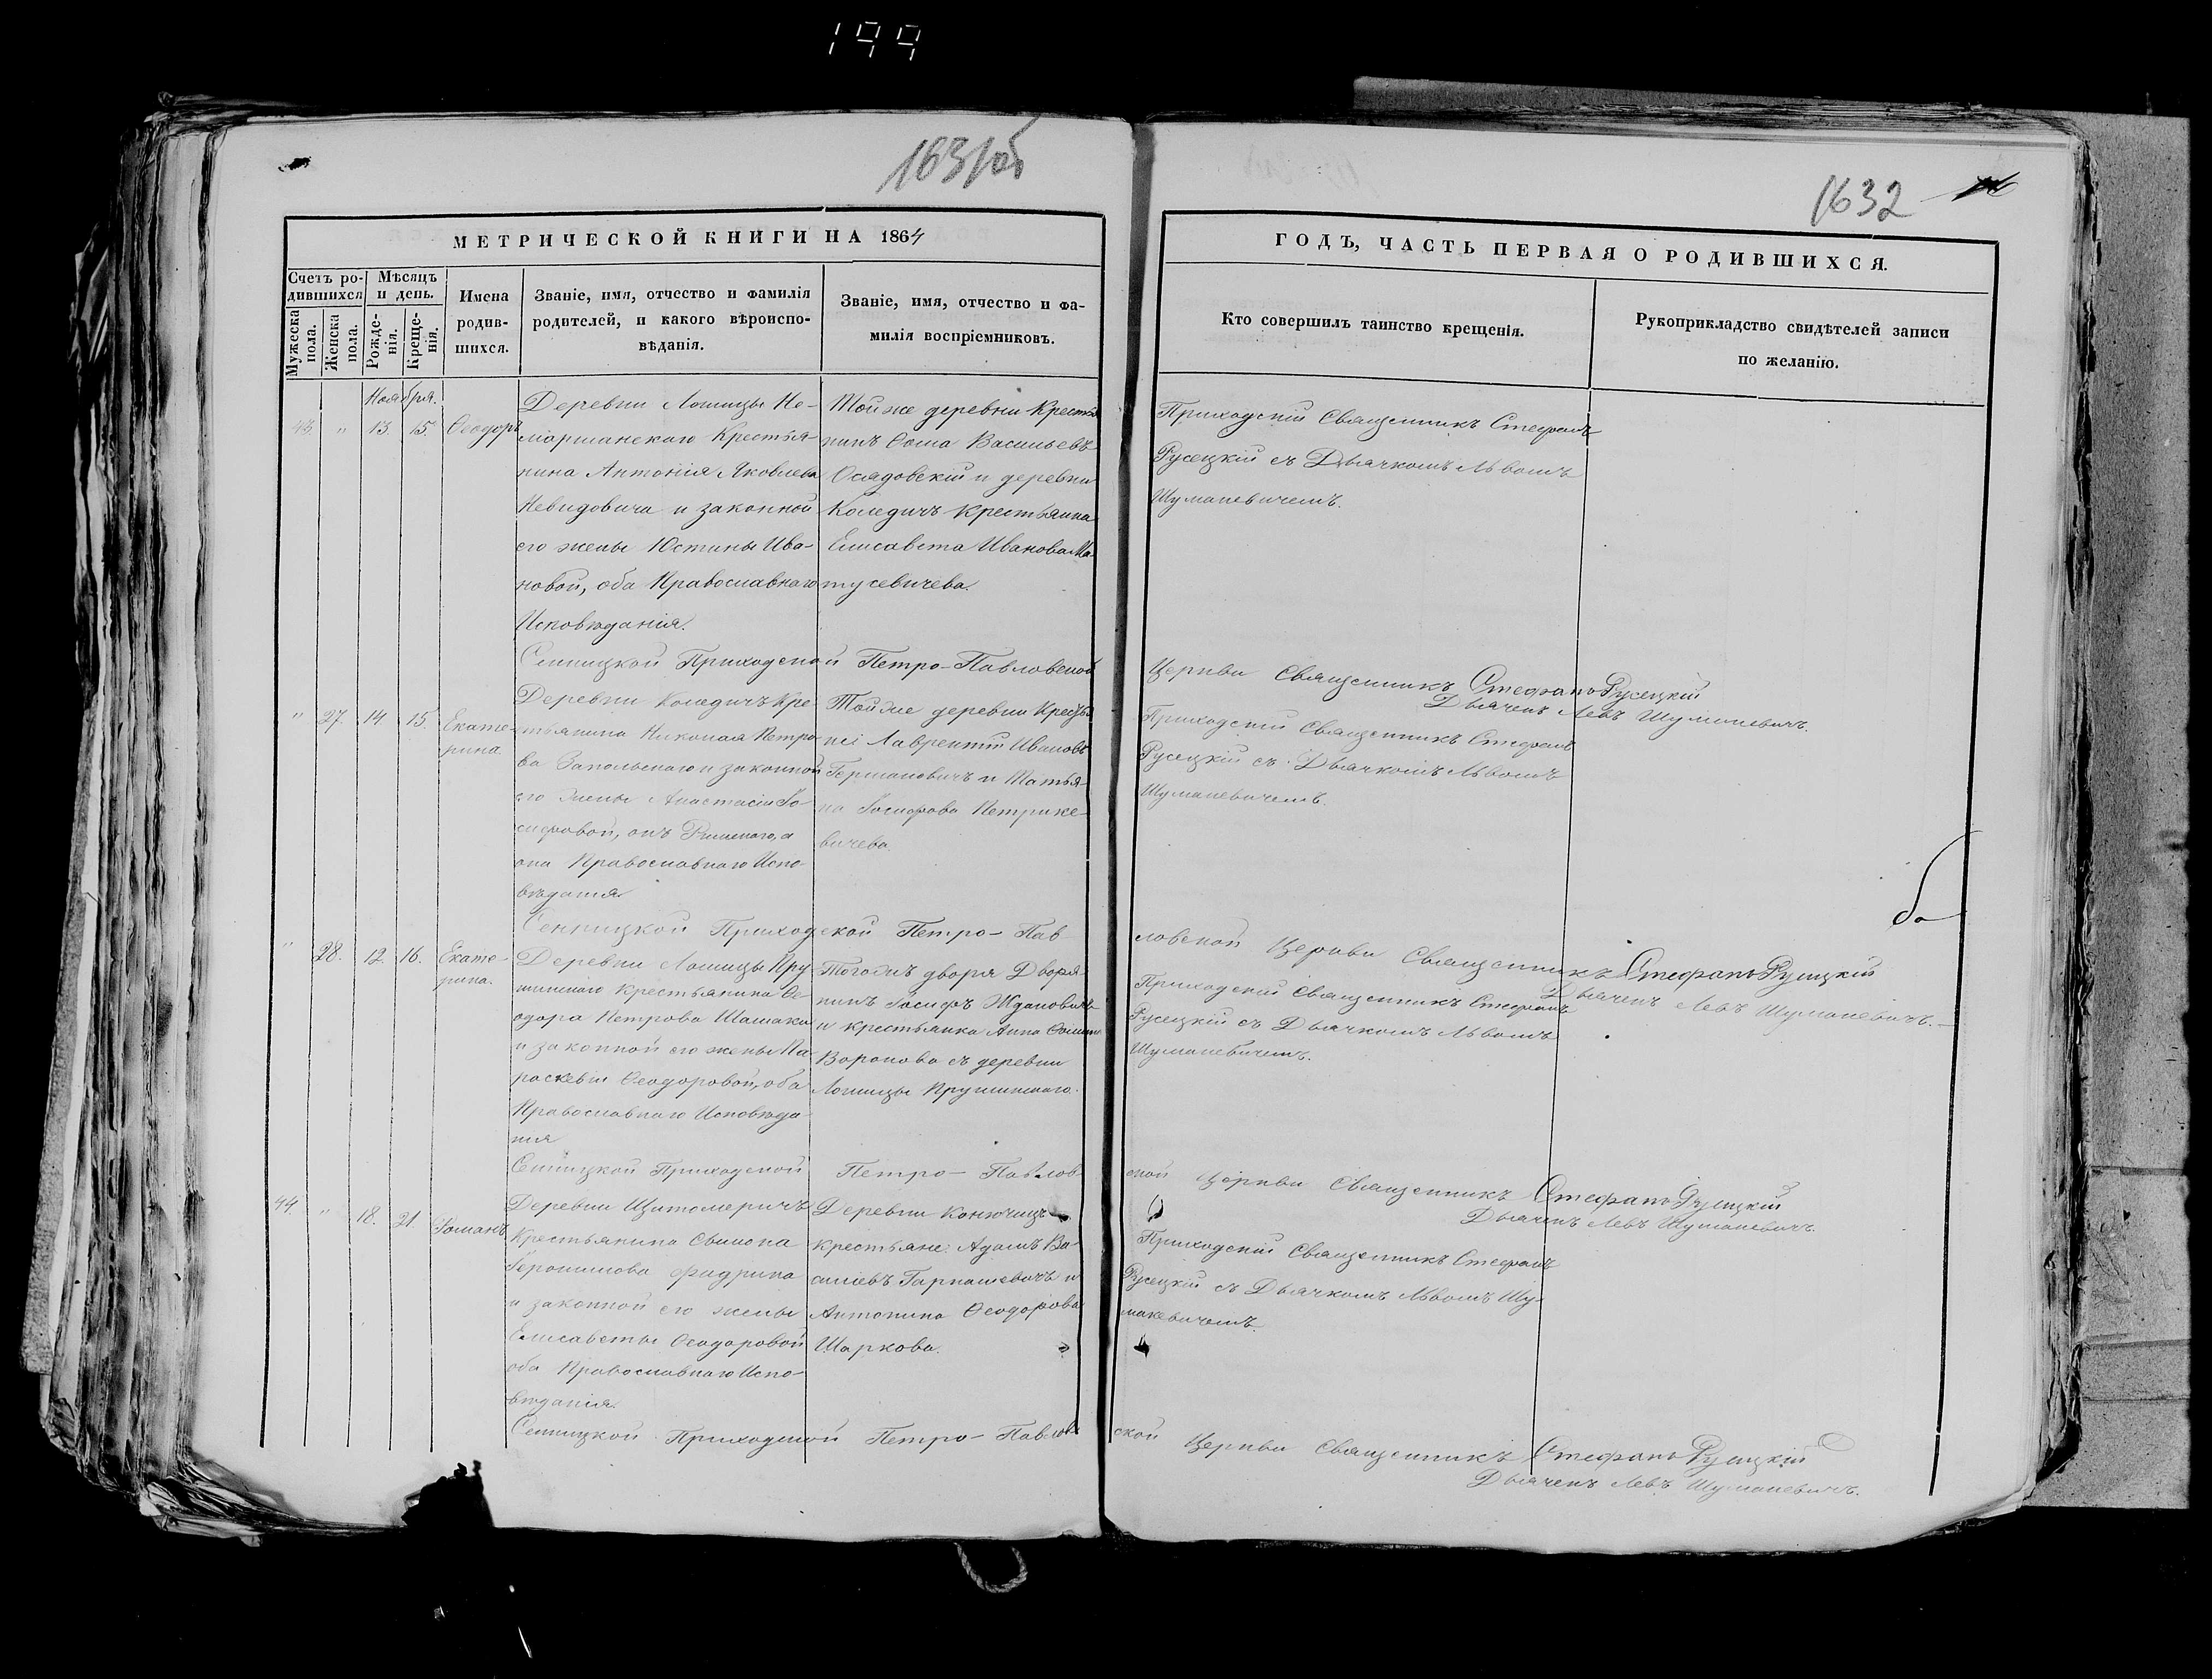 199
1631об
1632
МЕТРИЧЕСКОЙ КНИГИ НА 1864
ГОДЪ, ЧАСТЬ ПЕРВАЯ О РОДИВШИХСЯ.
Счетъ ро-
дившихся
Мужеска
пола.
Женска
пола.
Мѣсяцъ
и день.
Рожде-
нія.
Креще-
нія.
Имена
родив-
шихся.
Званіе, имя, отчество и фамилія
родителей, и какого вѣроиспо-
вѣданія.
Званіе, имя, отчество и фа-
милія воспріемниковъ.
Кто совершилъ таинство крещенія.
Рукоприкладство свидѣтелей записи
по желанію.
Ноября.
43. " 13. 15. Ѳеодоръ
Деревни Лошицы Не-
моршанскаго Крестья-
нина Антонія Яковлева
Невидовича и законной
его жены Юстины Ива-
новой, оба Православнаго
Исповѣданія.
Тойже деревни Крестья
нинъ Ѳома Васильевъ
Осядовскій и деревни
Колядичъ Крестьянка
Елисавета Иванова Ма-
тусевичева.
Приходскій Священникъ Стефанъ
Русецкій съ Дьячкомъ Львомъ
Шуманевичемъ.
Сеницкой Приходской Петро-Павловской
Церкви Священникъ Стефанъ Русецкій
Дьячекъ Левъ Шуманевичъ.
" 27. 14 15. Екате-
рина.
Деревни Колядичъ Кре-
стьянина Николая Петро-
ва Запольскаго и законной
его жены Анастасіи Іо-
сифовой, онъ Римскаго, а
она Православнаго Испо-
вѣданія.
Тойже деревни Крестья
не Лаврентій Ивановъ
Германовичъ и Татья-
на Іосифова Петрике-
вичева.
Приходскій Священникъ Стефанъ
Русецкій съ Дьячкомъ Львомъ
Шуманевичемъ.
Сенницкой Приходской Петро-Пав-
ловской Церкви Священникъ Стефанъ Русецкій
Дьячекъ Левъ Шуманевичъ.
" 28. 12. 16. Екате-
рина.
Деревни Лошицы Пру-
шинскаго Крестьянина Ѳе-
одора Петрова Шашако
и законной его жены Па-
раскевіи Ѳеодоровой, оба
Православнаго Исповѣда-
нія
Тогожъ двора Дворя-
нинъ Іосифъ Ждановичъ
и крестьянка Анна
Воронова съ деревни
Лошицы Прушинскаго.
Приходскій Священникъ Стефанъ
Русецкій съ Дьячкомъ Львомъ
Шуманевичемъ.
Сеницкой Приходской Петро-Павлов-
ской Церкви Священникъ Стефанъ Русецкій
Дьячекъ Левъ Шуманевичъ.
44. " 18. 21. Романъ
Деревни Щитомеричъ
Крестьянина Симона
Іеронимова
и законной его жены
Елисаветы Ѳеодоровой
оба Православнаго Испо-
вѣданія.
Деревни Конючицъ
крестьяне: Адамъ Ва-
силіевъ Гарнашевичъ и
Антонина Ѳеодорова
Шаркова.
Приходскій Священникъ Стефанъ
Русецкій съ Дьячкомъ Львомъ Шу-
маневичемъ.
Сеницкой Приходской Петро-Павлов
ской Церкви Священникъ Стефанъ Русецкій
Дьячекъ Левъ Шуманевичъ.